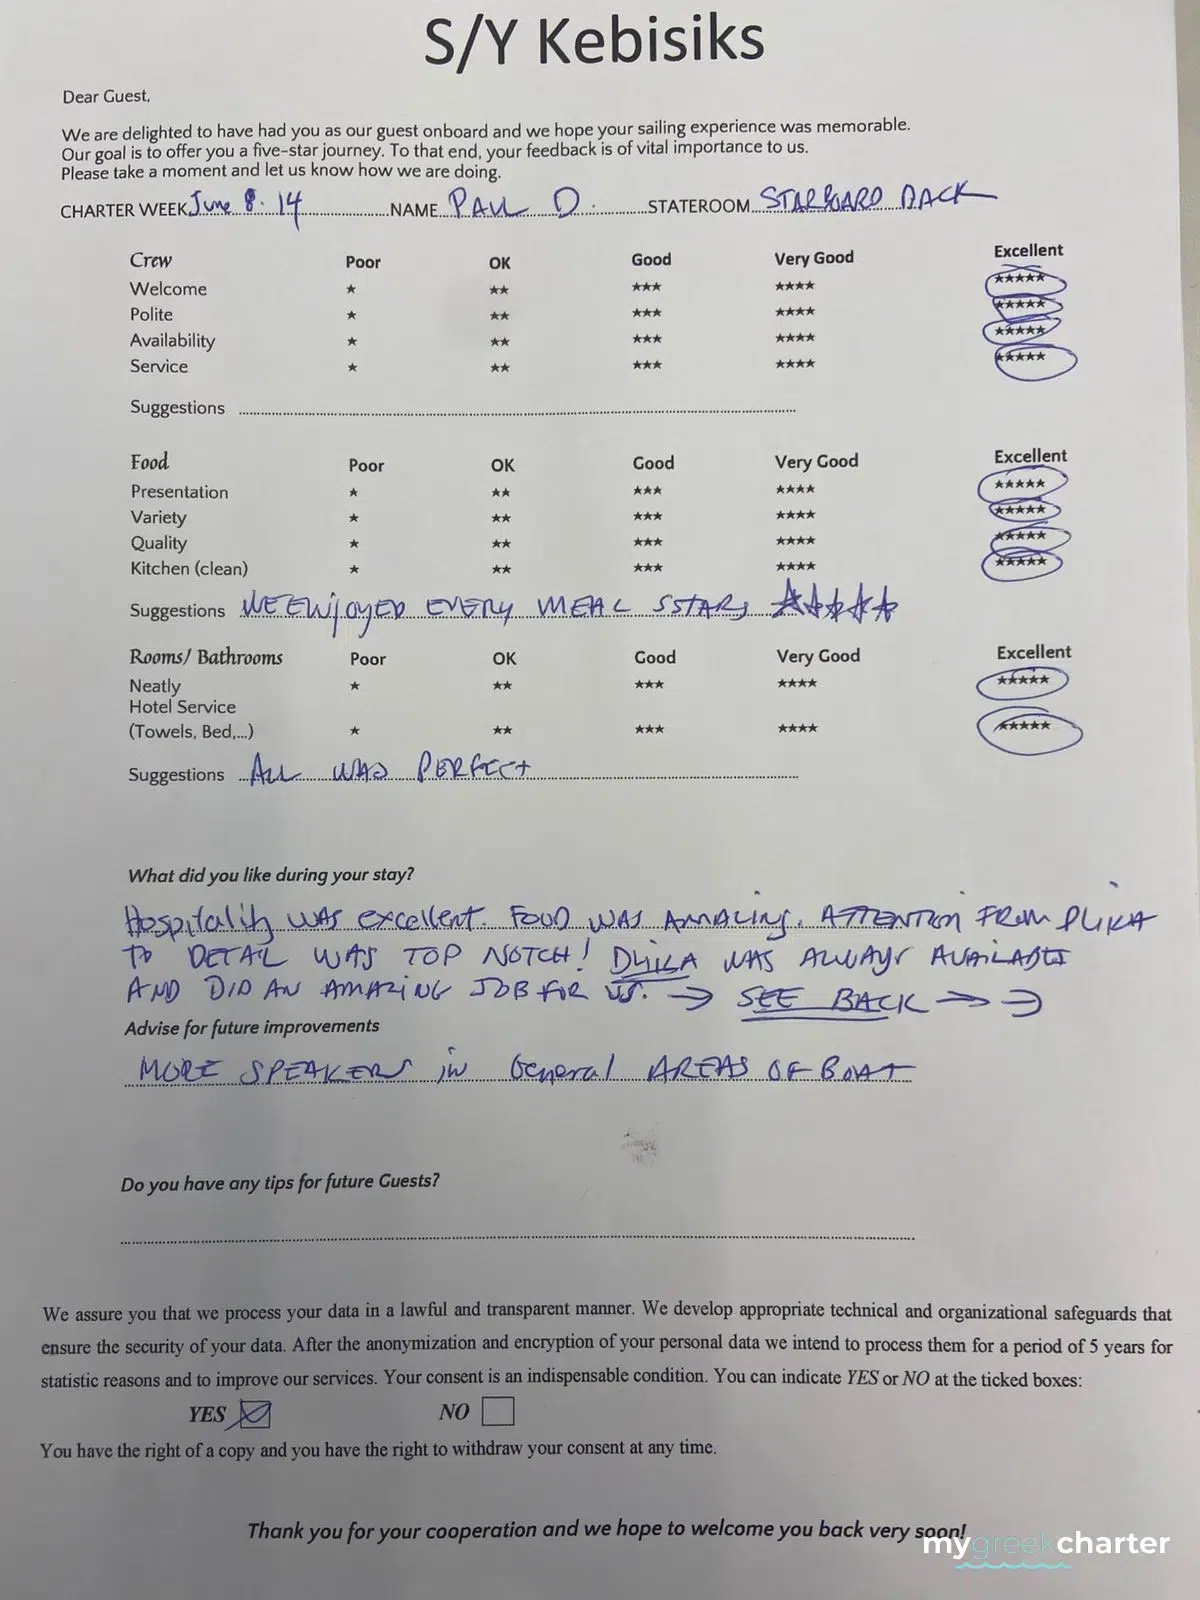 S/Y Kebisiks
Dear Guest,
We are delighted to have had you as our guest onboard and we hope your sailing experience was memorable.
Our goal is to offer you a five-star journey. To that end, your feedback is of vital importance to us.
Please take a moment and let us know how we are doing.
CHARTER WEEK June 8-14 NAME PAUL D. STATEROOM STARBOARD BACK
Crew Poor OK Good Very Good Excellent
Welcome ★ ★★ ★★★ ★★★★ ★★★★★
Polite ★ ★★ ★★★ ★★★★ ★★★★★
Availability ★ ★★ ★★★ ★★★★ ★★★★★
Service ★ ★★ ★★★ ★★★★ ★★★★★
Suggestions
Food Poor OK Good Very Good Excellent
Presentation ★ ★★ ★★★ ★★★★ ★★★★★
Variety ★ ★★ ★★★ ★★★★ ★★★★★
Quality ★ ★★ ★★★ ★★★★ ★★★★★
Kitchen (clean) ★ ★★ ★★★ ★★★★ ★★★★★
Suggestions WE ENJOYED EVERY MEAL 5 STARS ★★★★★
Rooms/ Bathrooms Poor OK Good Very Good Excellent
Neatly ★ ★★ ★★★ ★★★★ ★★★★★
Hotel Service
(Towels, Bed,...) ★ ★★ ★★★ ★★★★ ★★★★★
Suggestions ALL WAS PERFECT
What did you like during your stay?
Hospitality WAS excellent. FOOD WAS AMAZING. ATTENTION FROM
TO DETAIL WAS TOP NOTCH! WAS ALWAYS AVAILABLE
AND DID AN AMAZING JOB FOR US. → SEE BACK → →
Advise for future improvements
MORE SPEAKERS in General AREAS OF BOAT
Do you have any tips for future Guests?
We assure you that we process your data in a lawful and transparent manner. We develop appropriate technical and organizational safeguards that
ensure the security of your data. After the anonymization and encryption of your personal data we intend to process them for a period of 5 years for
statistic reasons and to improve our services. Your consent is an indispensable condition. You can indicate YES or NO at the ticked boxes:
YES NO
You have the right of a copy and you have the right to withdraw your consent at any time.
Thank you for your cooperation and we hope to welcome you back very soon!
mygreekcharter